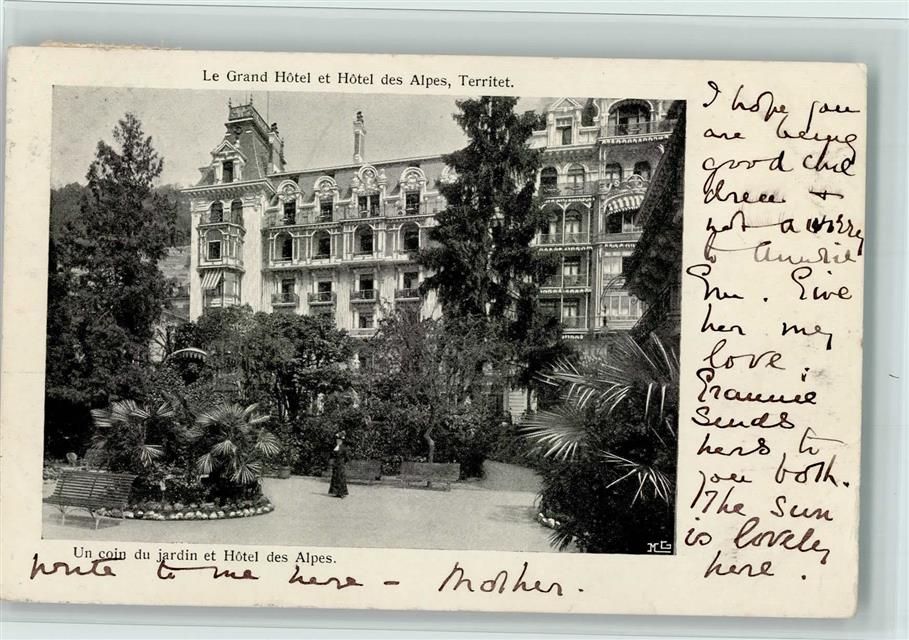 Le Grand Hôtel et Hôtel des Alpes, Territet.
I hope you
are being
good chil
dren +
not a worry
to
Em. Give
her my
love.
sends
hers to
you both.
The sun
is lovely
here.
MG
Un coin du jardin et Hôtel des Alpes.
write to me here – Mother.